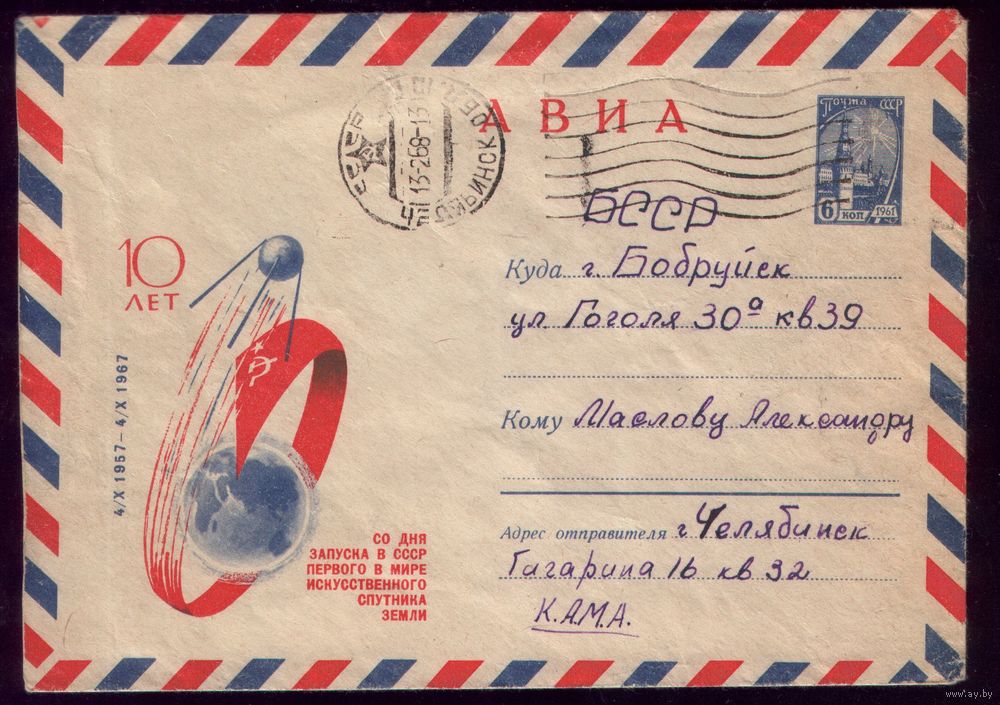 АВИА
Почта СССР
6 КОП 1961
СССР
13-268-13
ЧЕЛЯБИНСК
БССР
Куда г. Бобруйск
ул Гоголя 30а кв 39
Кому Маслову Александру
Адрес отправителя г Челябинск
Гагарина 16 кв 32
К.А.М.А.
10
ЛЕТ
4/X 1957–4/X 1967
СО ДНЯ
ЗАПУСКА В СССР
ПЕРВОГО В МИРЕ
ИСКУССТВЕННОГО
СПУТНИКА
ЗЕМЛИ
www.ay.by